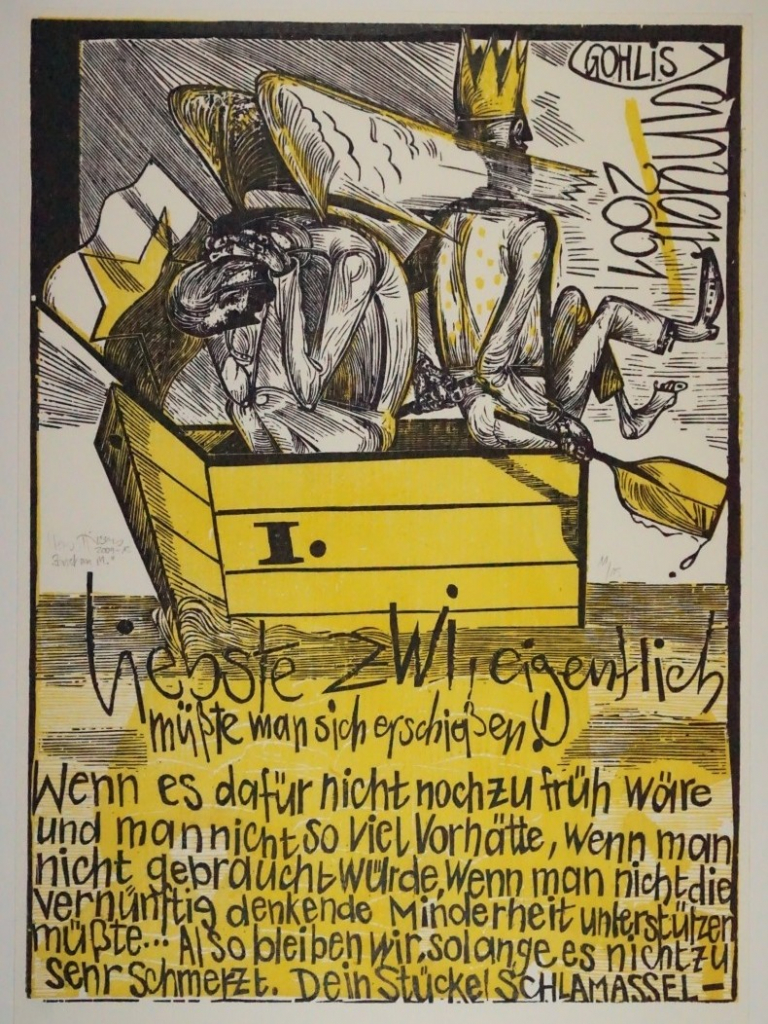 GOHLIS
Januar
2001
I.
Liebste ZWI, eigentlich
müßte man sich erschießen!
Wenn es dafür nicht noch zu früh wäre
und man nicht so viel Vorhätte, Wenn man
nicht gebraucht würde, Wenn man nicht die
vernünftig denkende Minderheit unterstützen
müßte... Also bleiben wir, solange es nicht zu
sehr Schmerzt. Dein Stückel SCHLAMASSEL-